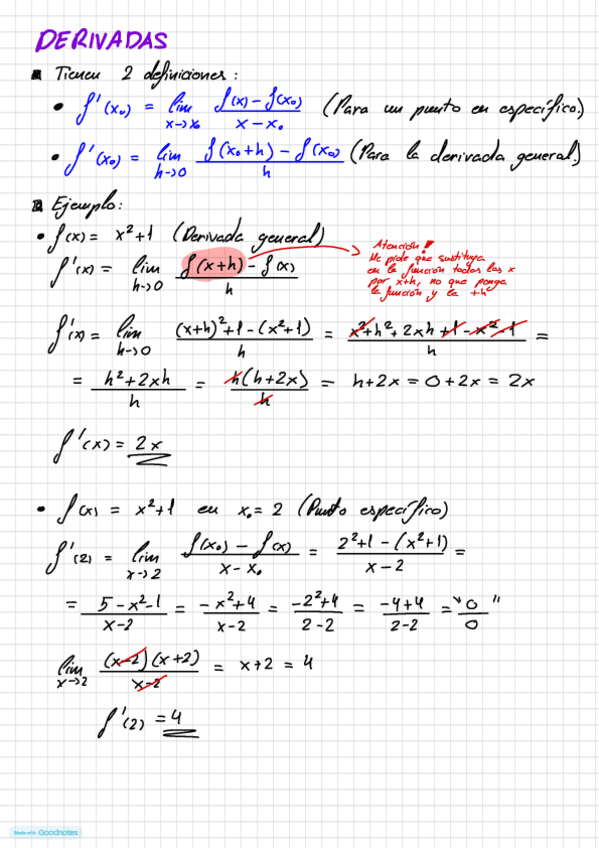 DERIVADAS
Tienen 2 definiciones:
• f'(x₀) = lim x→x₀ (f(x) - f(x₀)) / (x - x₀) (Para un punto en específico.)
• f'(x₀) = lim h→0 (f(x₀+h) - f(x₀)) / h (Para la derivada general)
Ejemplo:
• f(x) = x²+1 (Derivada general)
f'(x) = lim h→0 (f(x+h) - f(x)) / h
Atención!
Me pide que sustituya
en la función todas las x
por x+h, no que ponga
la función y le +h
f'(x) = lim h→0 ((x+h)²+1-(x²+1)) / h = (x²+h²+2xh+1-x²-1) / h =
= (h²+2xh) / h = (h(h+2x)) / h = h+2x = 0+2x = 2x
f'(x) = 2x
• f(x) = x²+1 en x₀ = 2 (Punto específico)
f'(2) = lim x→2 (f(x₀) - f(x)) / (x - x₀) = (2²+1-(x²+1)) / (x-2) =
= (5-x²-1) / (x-2) = (-x²+4) / (x-2) = (-2²+4) / (2-2) = (-4+4) / (2-2) = "0/0"
lim x→2 ((x-2)(x+2)) / (x-2) = x+2 = 4
f'(2) = 4
Made with Goodnotes